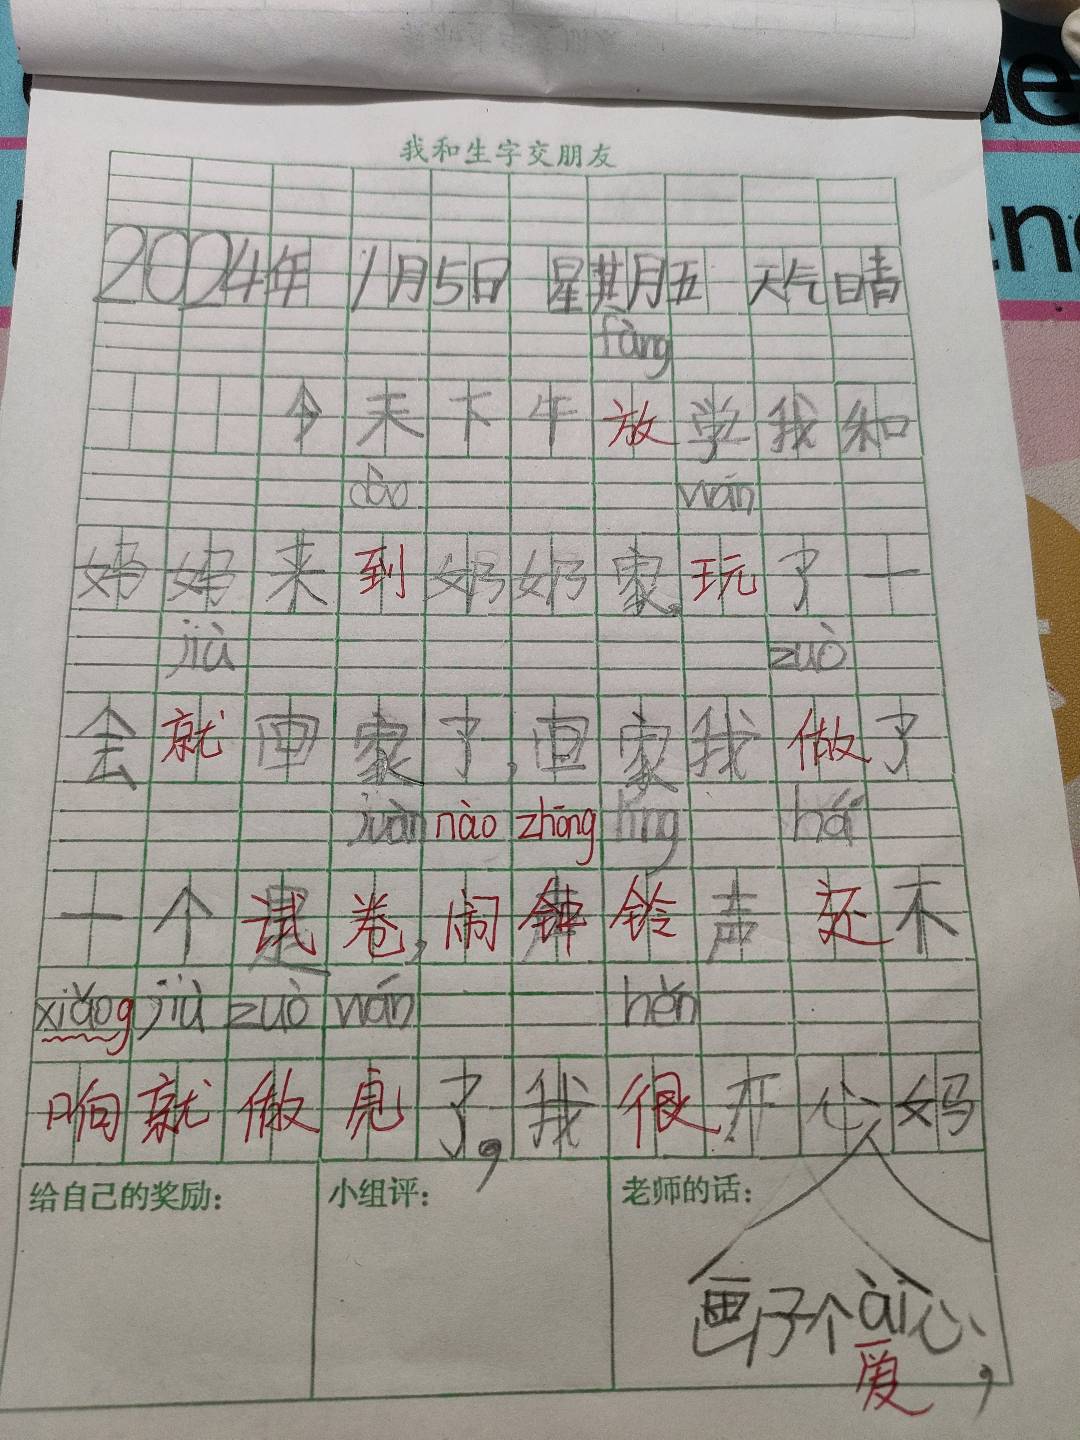 我和生字交朋友
2024年 1月5日 星其月五 天气晴
fàng
今天下午放学我和
dào wán
妈妈来到奶奶家,玩了一
jiù zuò
会就回家了,回家我做了
juàn nào zhōng líng hái
一个试卷,闹钟铃声还不
xiǎng jiù zuò wán hěn
响就做完了,我很开心,妈
给自己的奖励: 小组评: 老师的话:
画了个ài心,
爱